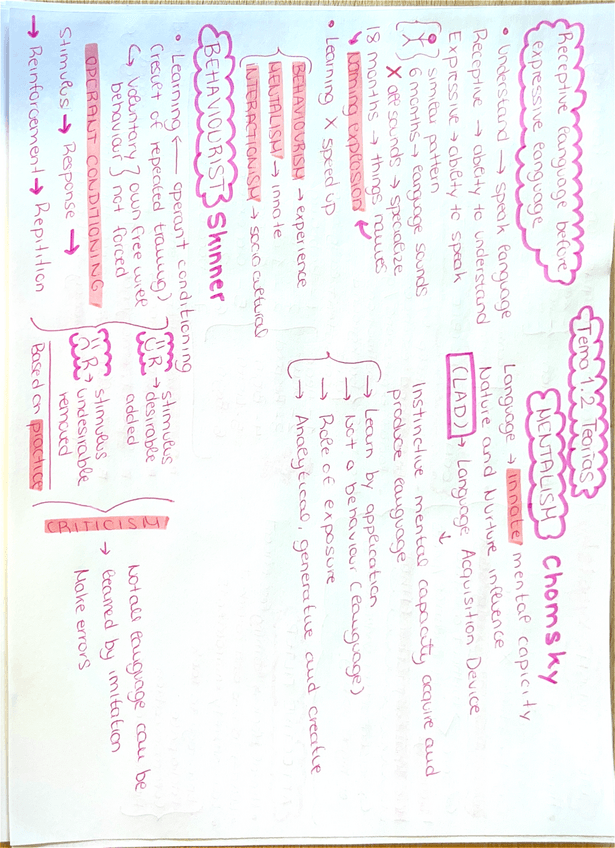 Tema 1.2 Teorias
Receptive language before
expressive language
• understand → speak language
Receptive → ability to understand
Expressive → ability to speak
similar pattern
6 months → language sounds
X all sounds → specialize
18 months → things names
→ Naming explosion ←
• Learning X speed up
BEHAVIOURISM → experience
MENTALISM → innate
INTERACTIONISM → sociocultural
BEHAVIOURIST Skinner
• Learning ← operant conditioning
(result of repeated training)
↳ voluntary } own free will
behaviour } not forced
OPERANT CONDITIONING
Stimulus → Response →
→ Reinforcement → Repitition
R → stimulus
desirable
added
R → stimulus
undesirable
removed
Based on practice
CRITICISM
→ Not all language can be
learned by imitation
Make errors
MENTALISM Chomsky
Language → innate mental capicity
Nature and Nurture influence
(LAD) → Language Acquisition Device
↓
Instinctive mental capacity acquire and
produce language
→ Learn by application
→ Not a behaviour (language)
→ Role of exposure
→ Analytical, generative and creative